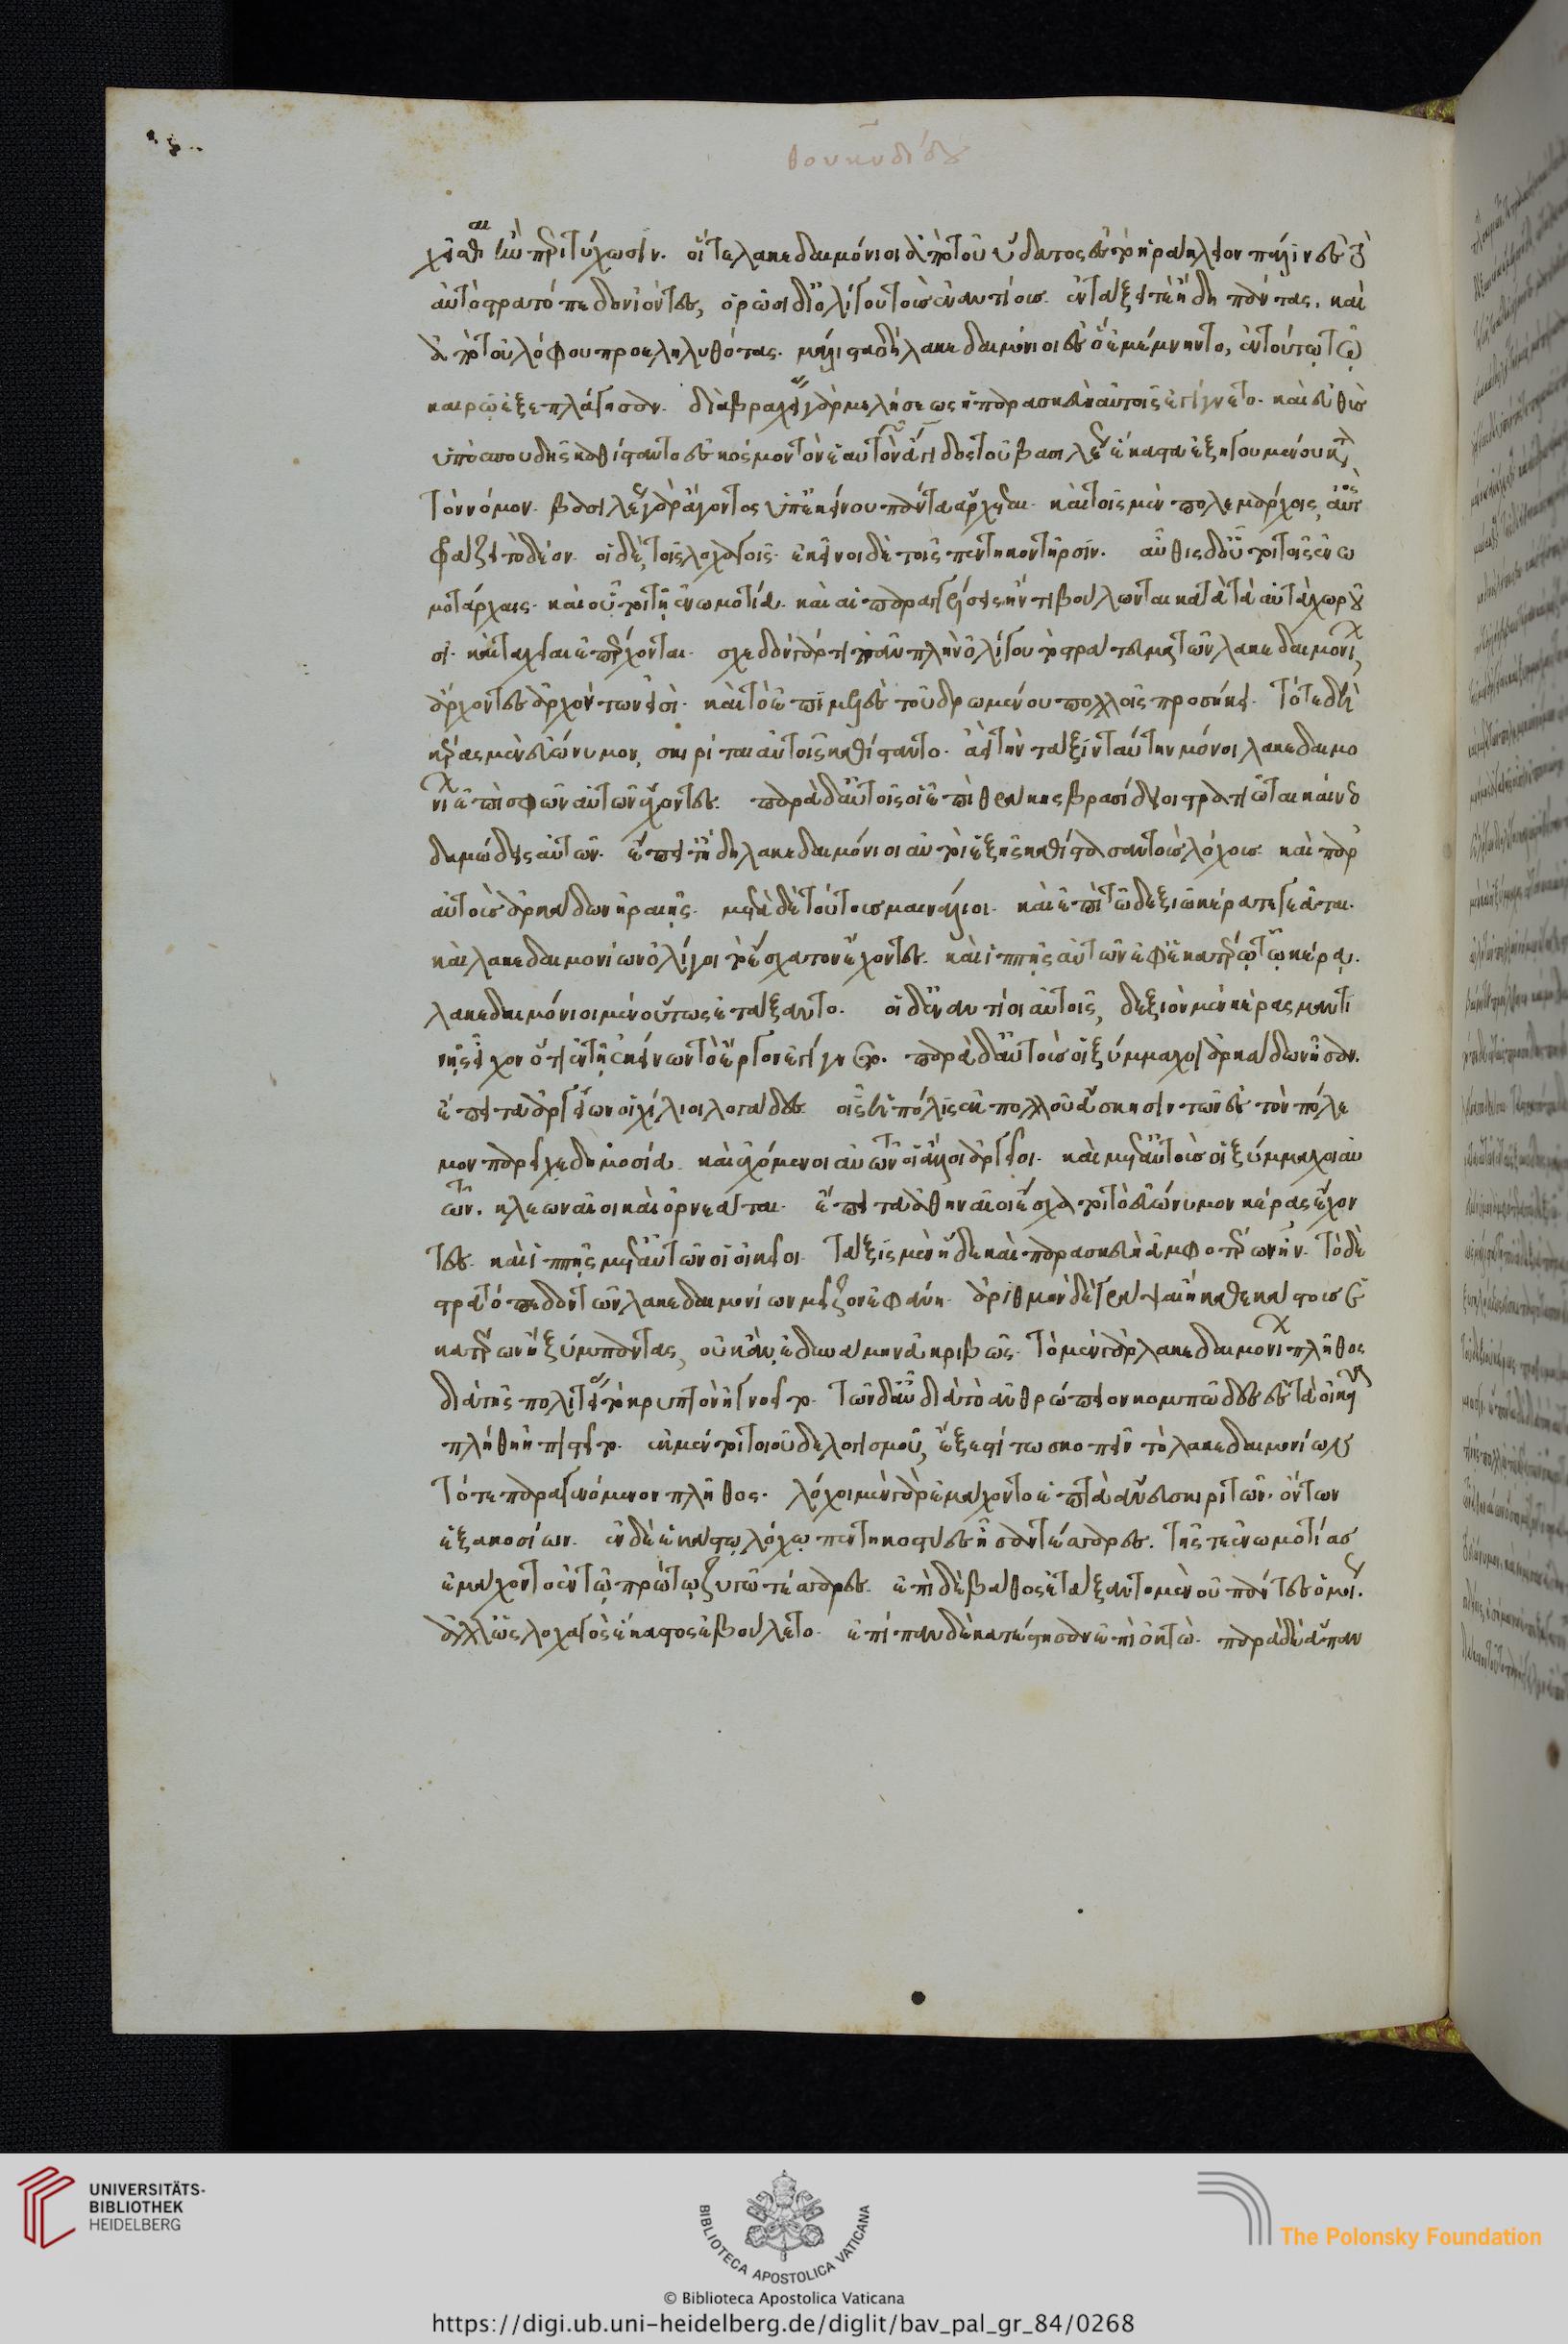 θουκυδίδου
χεῖσθαι ἢν περιτύχωσιν. οἵ τε λακεδαιμόνιοι ἀπὸ τοῦ ὕδατος ἐς τὸ ἡράκλειον πάλιν ἐς τὸ
αὐτὸ στρατόπεδον ἰόντες, ὁρῶσι δι' ὀλίγου τοὺς ἐναντίους ἐν τάξει τε ἤδη πάντας. καὶ
ἀπὸ τοῦ λόφου προεληλυθότας. μάλιστα δὴ λακεδαιμόνιοι ἐς ὃ ἐμέμνηντο, ἐν τούτῳ τῷ
καιρῷ ἐξεπλάγησαν. διὰ βραχείας γὰρ μελήσεως ἡ παρασκευὴ αὐτοῖς ἐγίγνετο. καὶ εὐθὺς
ὑπὸ σπουδῆς καθίσταντο ἐς κόσμον τὸν ἑαυτῶν ἄγιδος τοῦ βασιλέως ἕκαστα ἐξηγουμένου κατὰ
τὸν νόμον. βασιλέως γὰρ ἄγοντος ὑπ' ἐκείνου πάντα ἄρχεται. καὶ τοῖς μὲν πολεμάρχοις, αὐτὸς
φράζει τὸ δέον. οἱ δὲ, τοῖς λοχαγοῖς. ἐκεῖνοι δὲ τοῖς πεντηκοντῆρσιν. αὖθις δ' οὗτοι τοῖς ἐνω
μοτάρχαις. καὶ οὗτοι τῇ ἐνωμοτίᾳ. καὶ αἱ παραγγέλσεις ἤν τι βούλωνται κατὰ τὰ αὐτὰ χωροῦ
σι. καὶ ταχεῖαι ἐπέρχονται. σχεδὸν γάρ τι πᾶν πλὴν ὀλίγου τὸ στρατόπεδον τῶν λακεδαιμονίων,
ἄρχοντες ἀρχόντων εἰσὶ. καὶ τὸ ἐπιμελὲς τοῦ δρωμένου πολλοῖς προσήκει. τότε δὲ
κέρας μὲν εὐώνυμον, σκιρῖται αὐτοῖς καθίσταντο. ἀεὶ τὴν τάξιν ταύτην μόνοι λακεδαιμο
νίων ἐπὶ σφῶν αὐτῶν ἔχοντες. παρὰ δ' αὐτοῖς οἱ ἐπὶ θράκης βρασίδειοι στρατιῶται καὶ νεο
δαμώδεις αὐτῶν. ἔπειτ' ἤδη λακεδαιμόνιοι αὐτοὶ ἑξῆς καθίστασαν τοὺς λόχους. καὶ παρ'
αὐτοὺς ἀρκάδων ἡραιῆς. μετὰ δὲ τούτους μαινάλιοι. καὶ ἐπὶ τῷ δεξιῷ κέρᾳ τεγεᾶται.
καὶ λακεδαιμονίων ὀλίγοι τὸ ἔσχατον ἔχοντες. καὶ ἱππῆς αὐτῶν ἐφ' ἑκατέρῳ τῷ κέρᾳ.
λακεδαιμόνιοι μὲν οὕτως ἐτάξαντο. οἱ δ' ἐναντίοι αὐτοῖς, δεξιὸν μὲν κέρας μαντι
νῆς εἶχον ὅτι ἐν τῇ ἐκείνων τὸ ἔργον ἐγίγνετο. παρὰ δ' αὐτοὺς οἱ ξύμμαχοι ἀρκάδων ἦσαν.
ἔπειτα ἀργείων οἱ χίλιοι λογάδες. οἷς ἡ πόλις ἐκ πολλοῦ ἄσκησιν τῶν ἐς τὸν πόλε
μον παρεῖχε δημοσίᾳ. καὶ ἐχόμενοι αὐτῶν οἱ ἄλλοι ἀργεῖοι. καὶ μετ' αὐτοὺς οἱ ξύμμαχοι αὐ
τῶν. κλεωναῖοι καὶ ὀρνεᾶται. ἔπειτα ἀθηναῖοι ἔσχατοι τὸ εὐώνυμον κέρας ἔχον
τες. καὶ ἱππῆς μετ' αὐτῶν οἱ οἰκεῖοι. τάξις μὲν ἥδε καὶ παρασκευὴ ἀμφοτέρων ἦν. τὸ δὲ
στρατόπεδον τῶν λακεδαιμονίων μεῖζον ἐφάνη. ἀριθμὸν δὲ γράψαι ἢ καθεκάστους ἑ
κατέρων ἢ ξύμπαντας, οὐκ ἂν ἐδυνάμην ἀκριβῶς. τὸ μὲν γὰρ λακεδαιμονίων πλῆθος
διὰ τῆς πολιτείας τὸ κρυπτὸν ἠγνοεῖτο. τῶν δ' αὖ διὰ τὸ ἀνθρώπειον κομπῶδες ἐς τὰ οἰκεῖα
πλήθη ἠπιστεῖτο. ἐκ μέντοι τοιοῦδε λογισμοῦ, ἔξεστί τῳ σκοπεῖν τὸ λακεδαιμονίων
τότε παραγενόμενον πλῆθος. λόχοι μὲν γὰρ ἐμάχοντο ἑπτὰ ἄνευ σκιριτῶν. ὄντων
ἑξακοσίων. ἐν δὲ ἑκάστῳ λόχῳ πεντηκοστύες ἦσαν τέσσαρες. τῆς τε ἐνωμοτίας
ἐμάχοντο ἐν τῷ πρώτῳ ζυγῷ τέσσαρες. ἐπὶ δὲ βάθος ἐτάξαντο μὲν οὐ πάντες ὁμοίως.
ἀλλ' ὡς λοχαγὸς ἕκαστος ἐβούλετο. ἐπίπαν δὲ κατέστησαν ἐπὶ ὀκτώ. παρὰ δὲ ἅπαν
UNIVERSITÄTS-
BIBLIOTHEK
HEIDELBERG
BIBLIOTECA APOSTOLICA VATICANA
The Polonsky Foundation
© Biblioteca Apostolica Vaticana
https://digi.ub.uni-heidelberg.de/diglit/bav_pal_gr_84/0268